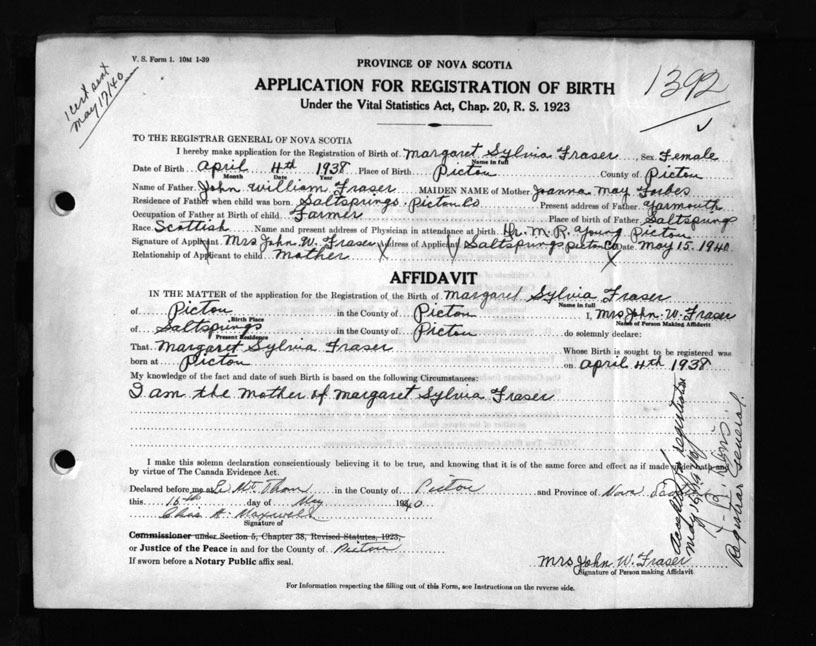 V. S. Form 1. 10M 1-39
1 cert sent
May 17/40
PROVINCE OF NOVA SCOTIA
APPLICATION FOR REGISTRATION OF BIRTH
Under the Vital Statistics Act, Chap. 20, R. S. 1923
1392
TO THE REGISTRAR GENERAL OF NOVA SCOTIA
I hereby make application for the Registration of Birth of Margaret Sylvia Fraser Sex Female
Name in full
Date of Birth April 4th 1938 Place of Birth Pictou County of Pictou
Month Date Year
Name of Father John William Fraser MAIDEN NAME of Mother Joanna May Forbes
Residence of Father when child was born Saltsprings Pictou Co Present address of Father Yarmouth
Occupation of Father at Birth of child Farmer Place of birth of Father Saltsprings
Race Scottish Name and present address of Physician in attendance at birth Dr. M. R. Young Pictou
Signature of Applicant Mrs John W. Fraser Address of Applicant Saltsprings Pictou Co Date May 15. 1940
Relationship of Applicant to child Mother
AFFIDAVIT
IN THE MATTER of the application for the Registration of the Birth of Margaret Sylvia Fraser
Name in full
of Pictou in the County of Pictou I, Mrs John W. Fraser
Birth Place Name of Person Making Affidavit
of Saltsprings in the County of Pictou do solemnly declare:
Present Residence
That Margaret Sylvia Fraser Whose Birth is sought to be registered was
born at Pictou on April 4th 1938
My knowledge of the fact and date of such Birth is based on the following Circumstances:
I am the Mother of Margaret Sylvia Fraser
I make this solemn declaration conscientiously believing it to be true, and knowing that it is of the same force and effect as if made under oath and
by virtue of The Canada Evidence Act.
Declared before me at Mt Thom in the County of Pictou and Province of Nova Scotia
this 16th day of May 1940
Chas A. Maxwell
Signature of
Commissioner under Section 5, Chapter 38, Revised Statutes, 1923,
or Justice of the Peace in and for the County of Pictou
If sworn before a Notary Public affix seal.
Mrs John W. Fraser
Signature of Person making Affidavit
Accepted for registration
May 16th 1940
Registrar General.
For Information respecting the filling out of this Form, see Instructions on the reverse side.